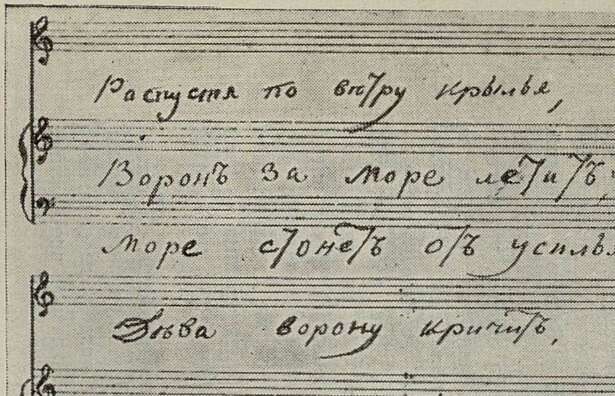 Распустя по вѣтру крылья,
Воронъ за море летитъ,
море стонетъ отъ усилья
Дѣва ворону кричитъ,